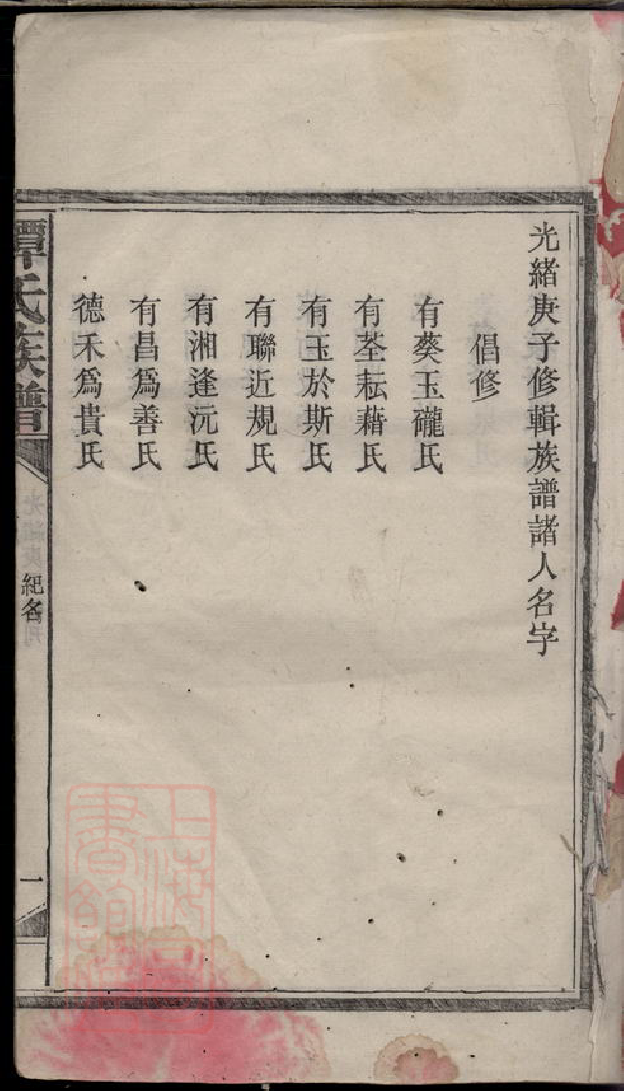 光緒庚子修輯族譜諸人名字
倡修
有葵玉礲氏
有荃耘藉氏
有玉於斯氏
有聯近規氏
有湘逢沅氏
有昌爲善氏
德禾爲貴氏
譚氏族譜
紀名
一
上海圖書館藏